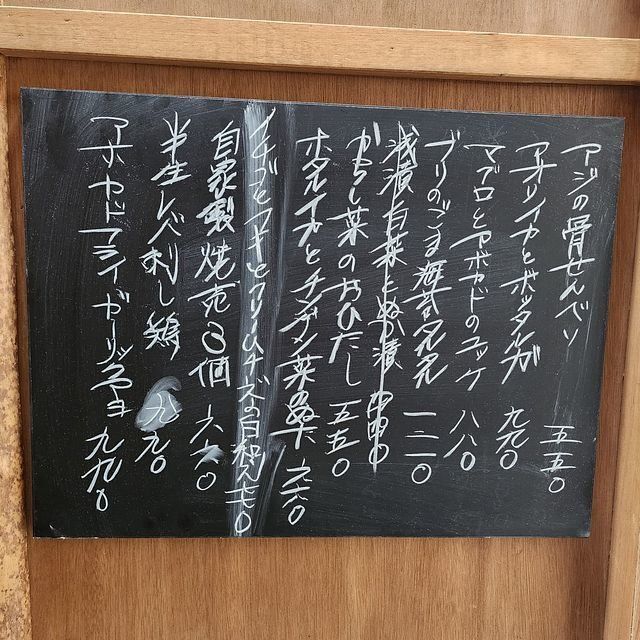 アジの骨せんべい 五五〇
アオリイカとボッタルガ 九九〇
マグロとアボカドのユッケ 八八〇
ブリのごま 一二一〇
浅漬 白菜とぬか漬
からし菜のおひたし 五五〇
ホタルイカとチンゲン菜の
イチゴと クリームチーズの白和え
自家製焼売3個 六六〇
半生レバ刺し鶏 九九〇
アボカドフライ ガーリック 九九〇